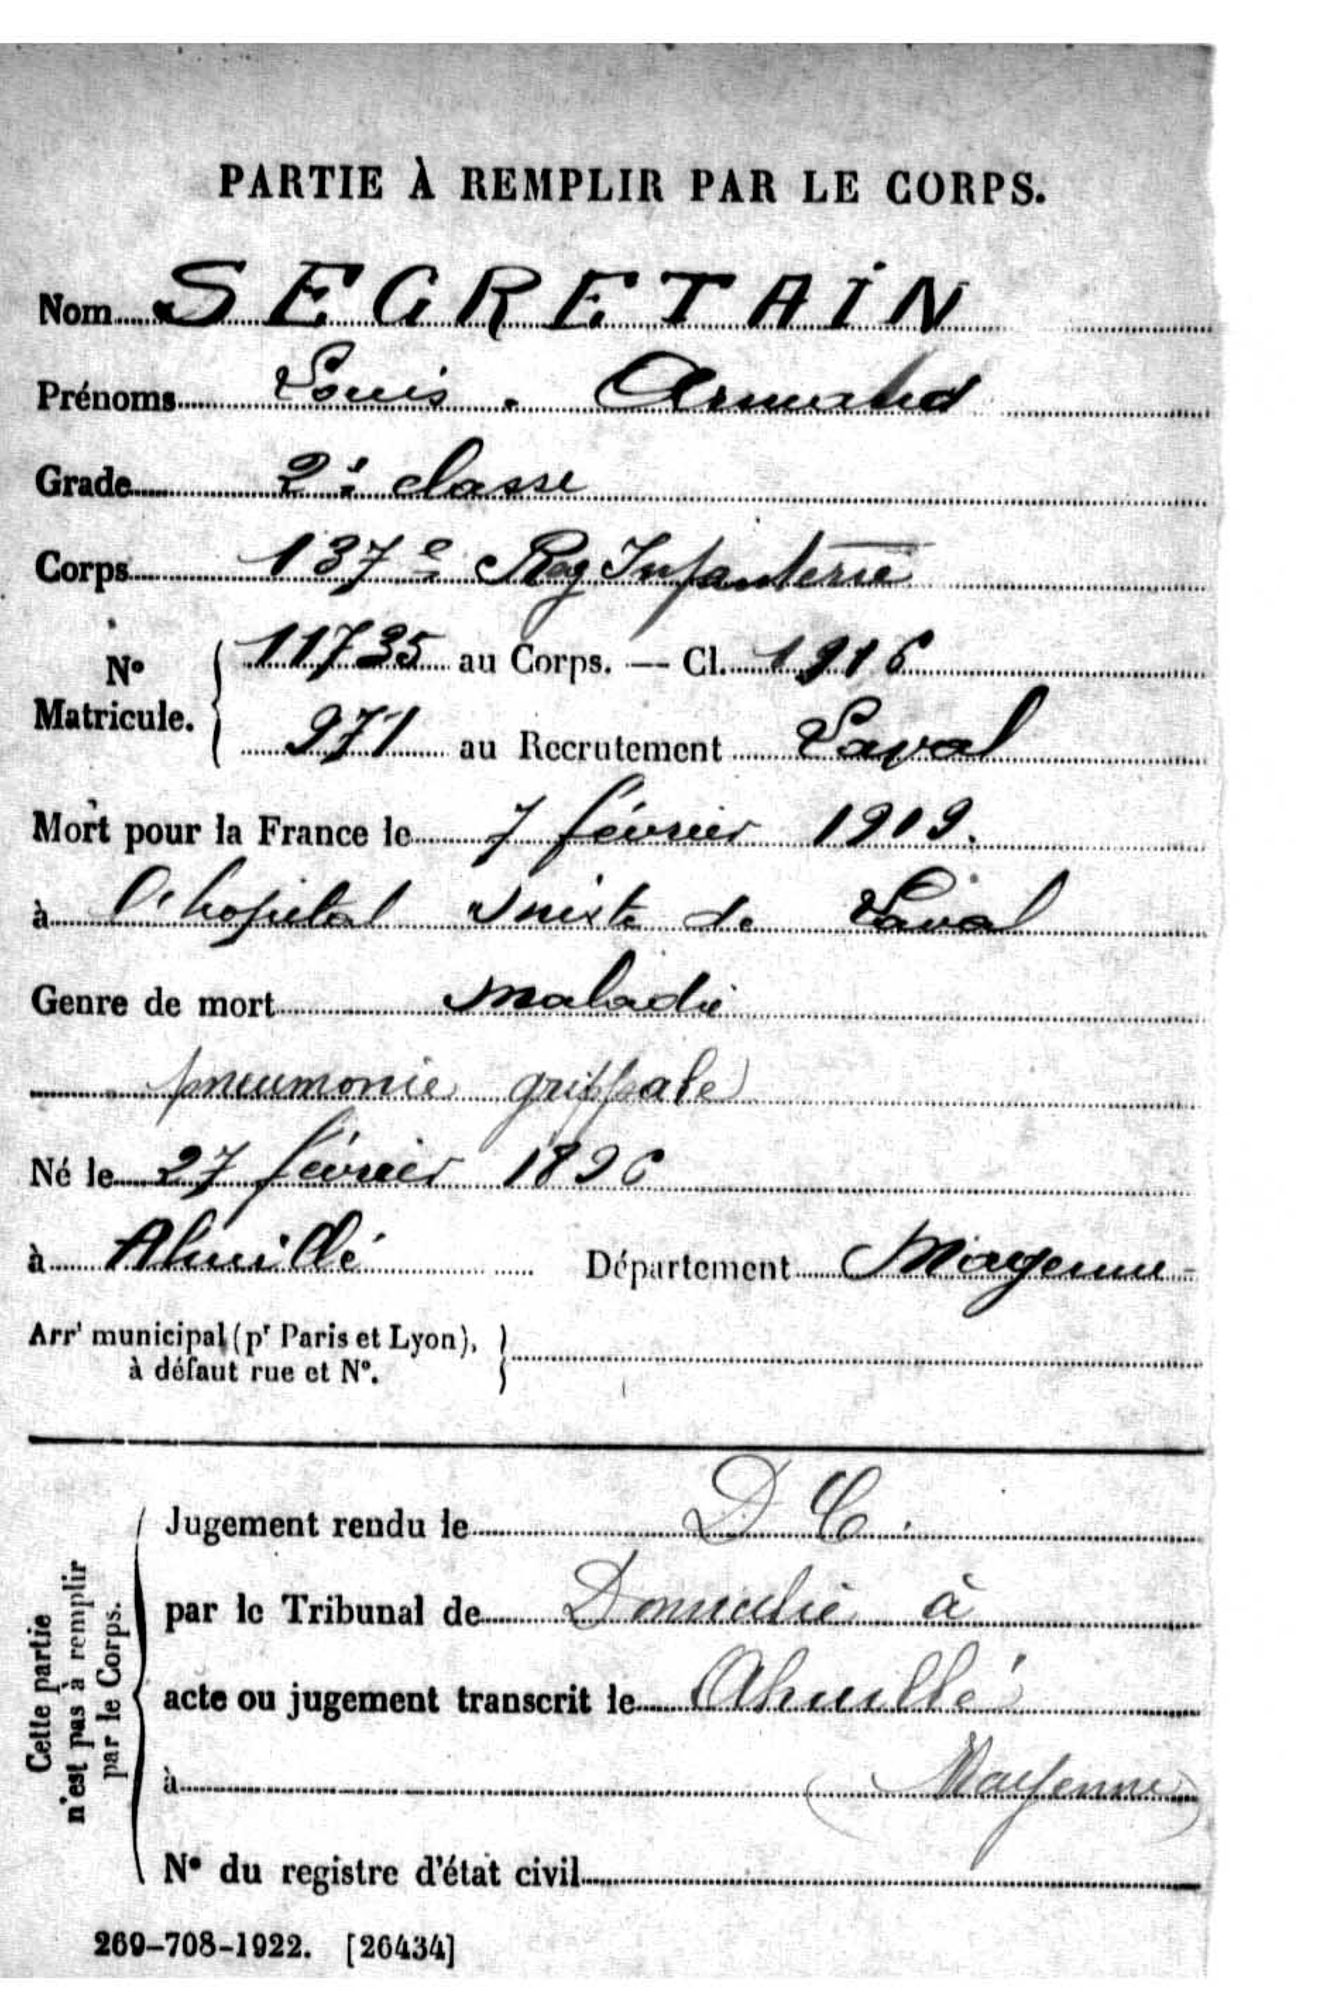 PARTIE À REMPLIR PAR LE CORPS.
Nom SEGRETAIN
Prénoms Louis. Armand
Grade 2e classe
Corps 137e Reg Infanterie
No Matricule. 11735 au Corps. — Cl. 1916
971 au Recrutement Laval
Mort pour la France le 7 février 1919.
à l'hopital mixte de Laval
Genre de mort maladie
pneumonie grippale
Né le 27 février 1896
à Ahuillé Département Mayenne
Arrt municipal (pr Paris et Lyon),
à défaut rue et No.
Cette partie
n'est pas à remplir
par le Corps.
Jugement rendu le D C.
par le Tribunal de Domicilié à
acte ou jugement transcrit le Ahuillé
à (Mayenne)
No du registre d'état civil
269-708-1922. [26434]